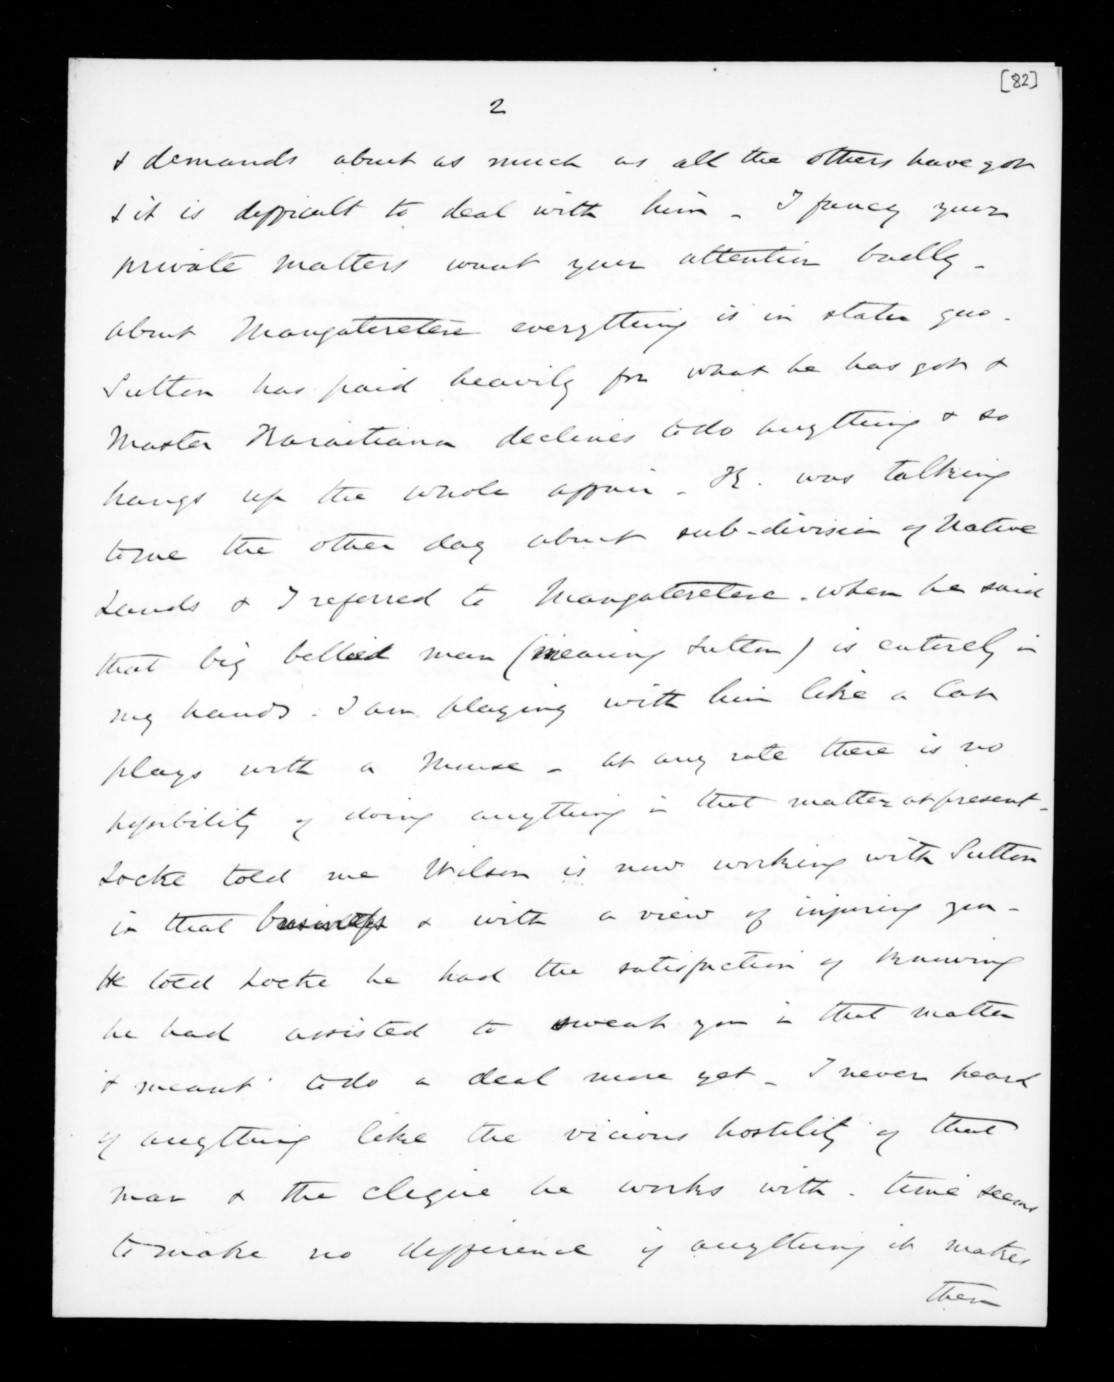 [82]
2
& demands about as much as all the others have got
& it is difficult to deal with him - I fancy your
private matters want your attention badly -
about Mangateretere everything is in statu quo -
Sutton has paid heavily for what he has got &
Master Karaitiana declines to do anything & so
hangs up the whole affair - K. was talking
to me the other day about sub-division of Native
Lands & I referred to Mangateretere - when he said
that big bellied man (meaning Sutton) is entirely in
my hands. I am playing with him like a Cat
plays with a Mouse - at any rate there is no
possibility of doing anything in that matter at present -
Locke told me Wilson is now working with Sutton
in that business & with a view of injuring you -
He told Locke he had the satisfaction of knowing
he had assisted to sweat you in that matter
& meant to do a deal more yet - I never heard
of anything like the vicious hostility of that
man & the clique he works with - time seems
to make no difference if anything it makes
them